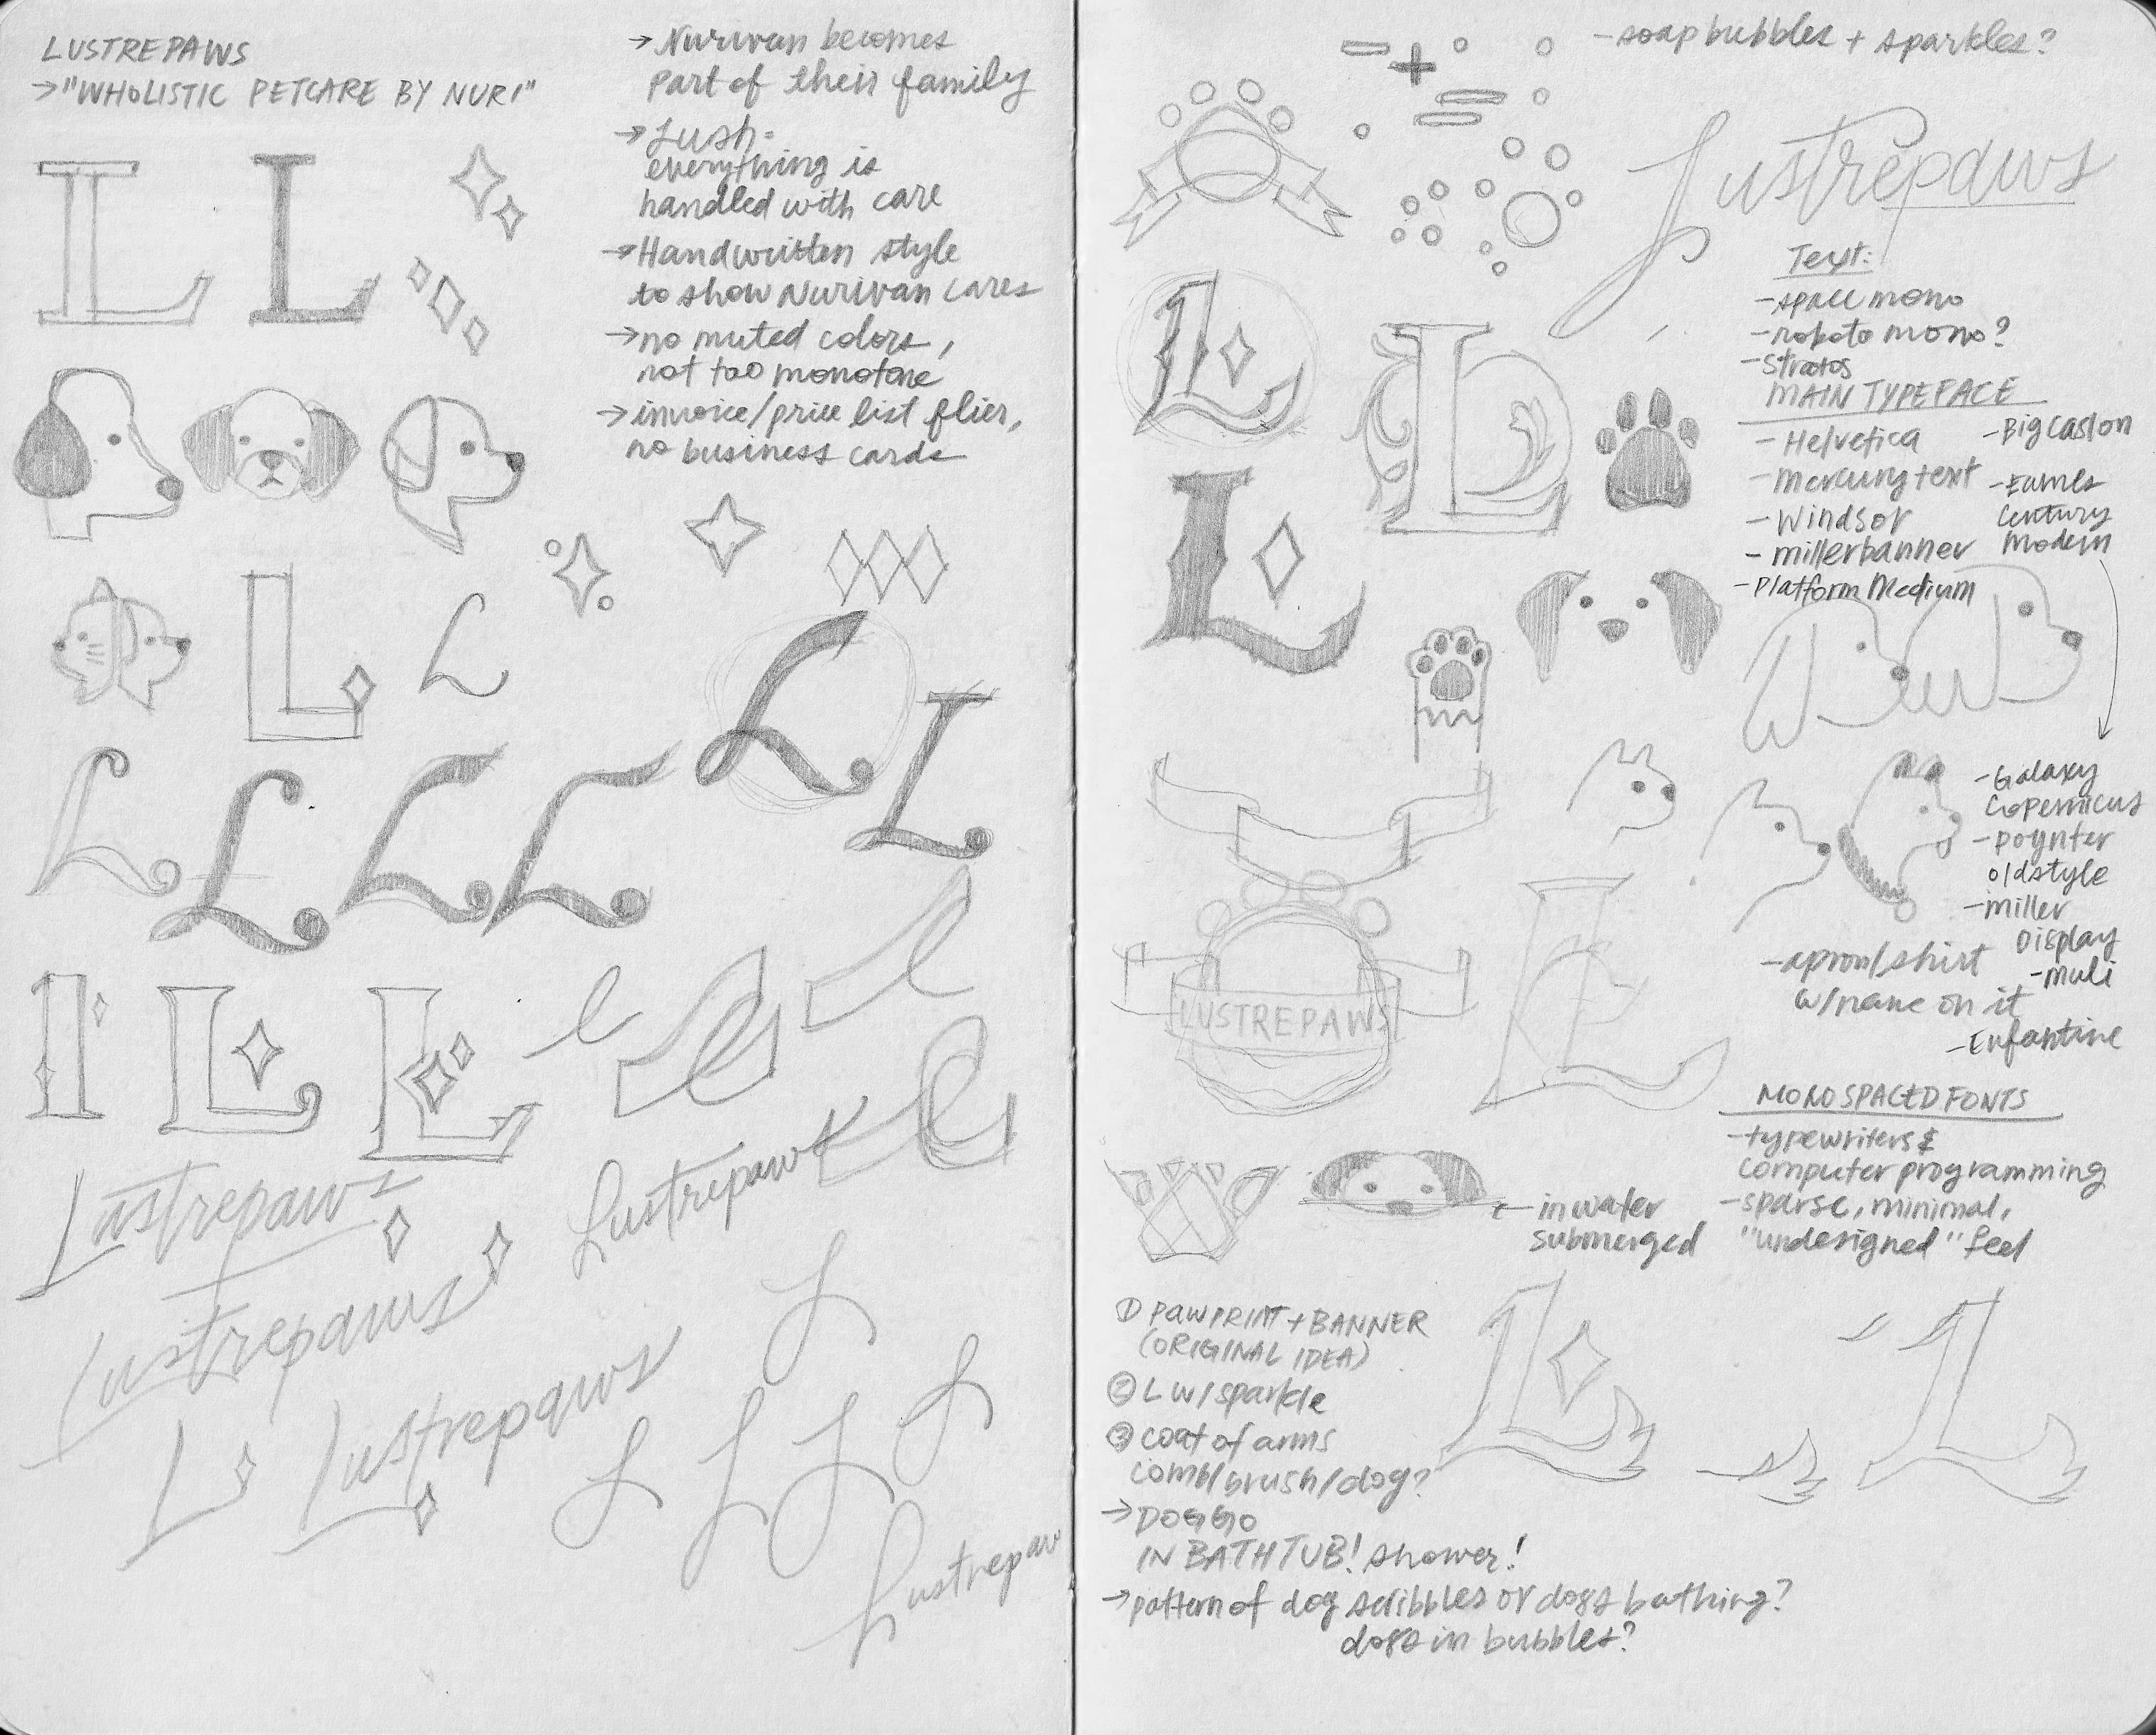 LUSTREPAWS
→"WHOLISTIC PETCARE BY NURI"
L L
→Nurivan becomes
part of their family
→Lush-
everything is
handled with care
→Handwritten style
to show Nurivan cares
→no muted colors,
not too monotone
→invoice/price list flier,
no business cards
L L
L
L
L L L L
L L L
Lustrepaws
Lustrepaws
Lustrepaws
Lustrepaws
L
L L L L L
Lustrepaw
-soap bubbles + sparkles?
Lustrepaws
Text:
-space mono
-roboto mono?
-Stratos
MAIN TYPEFACE
-Helvetica
-mercury text
-Windsor
-millerbanner
-Platform Medium
-Big caslon
-Eames
Century
Modern
-Galaxy
Copernicus
-poynter
oldstyle
-miller
Display
-muli
-Enfantine
L L
L
LUSTREPAWS
L
-apron/shirt
w/name on it
MONOSPACED FONTS
-typewriters &
computer programming
-sparse, minimal,
"undesigned" feel
-in water
submerged
① PAWPRINT + BANNER
(ORIGINAL IDEA)
② L w/sparkle
③ coat of arms
comb/brush/dog?
→DOGGO
IN BATHTUB! shower!
→pattern of dog scribbles or dogs bathing?
dogs in bubbles?
L L